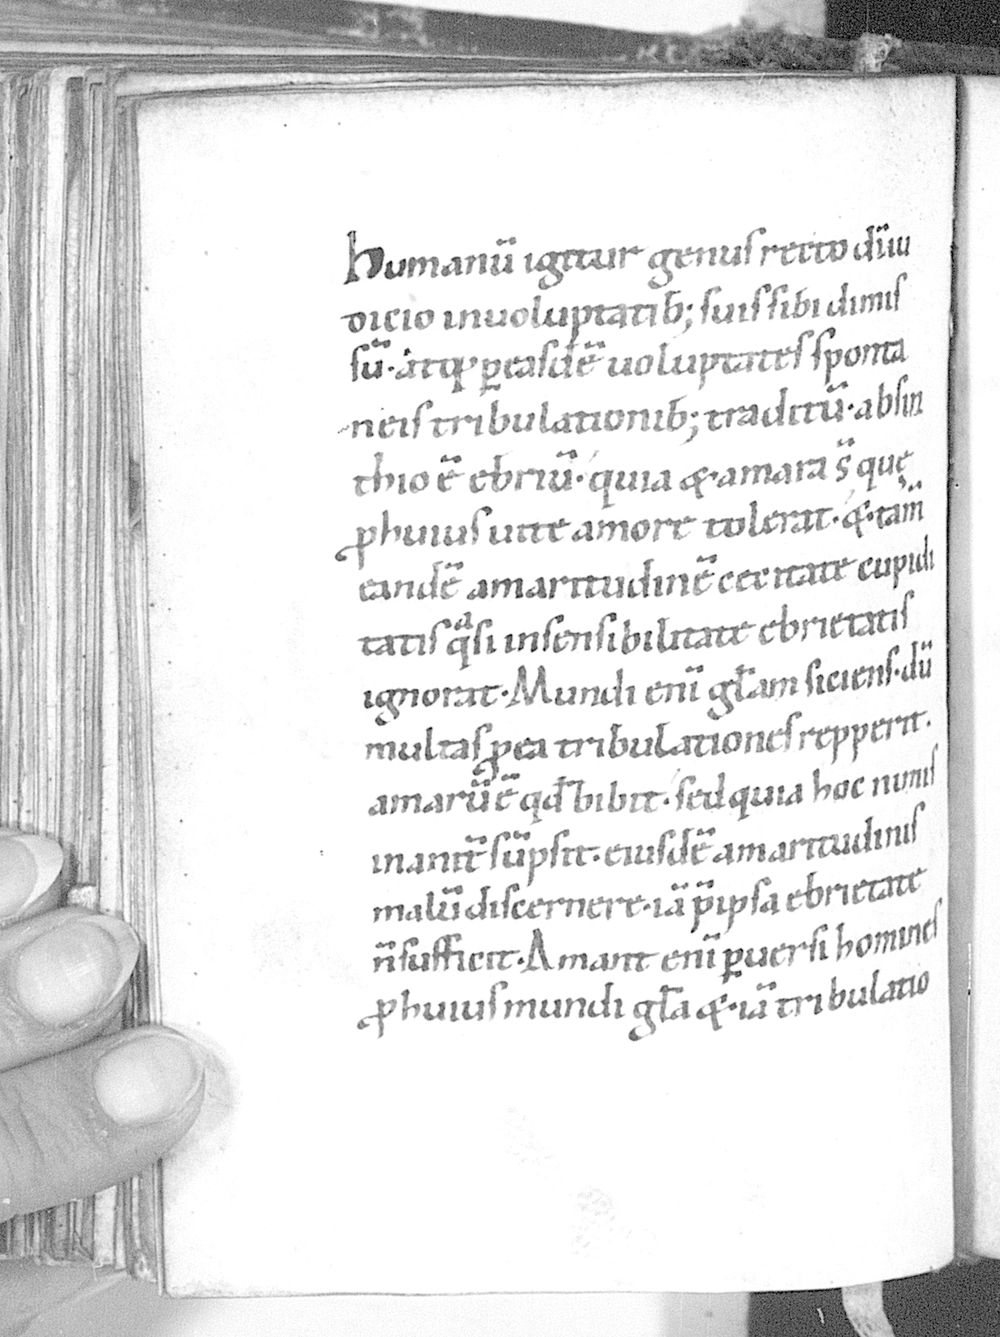 humanū igitur genus recto dīuı
dicio in uoluptatib; suis sibi dimis
sū· atq; ꝑ easdē uoluptates sponta
neis tribulationib; traditū· absin
thio ē ebriū· quia &·amara s̄ quę
ꝓ huius uite amore tolerat· &·tam̄
eandē amaritudinē cecitate cupidi
tatis qͣsi insensibilitate ebrietatis
ignorat· Mundi enī gl̄am siciens· dū
multas ꝓ ea tribulationes repperit·
amarū ē qđ bibit· sed quia hoc nimis
inanit̄ sūpsit· eiusdē amaritudinis
malū discernere· iā p̄ ipsa ebrietate
n̄ sufficit· Amant enī ꝑuersi homines
ꝓ huius mundi gl̄a &·iā tribulatio